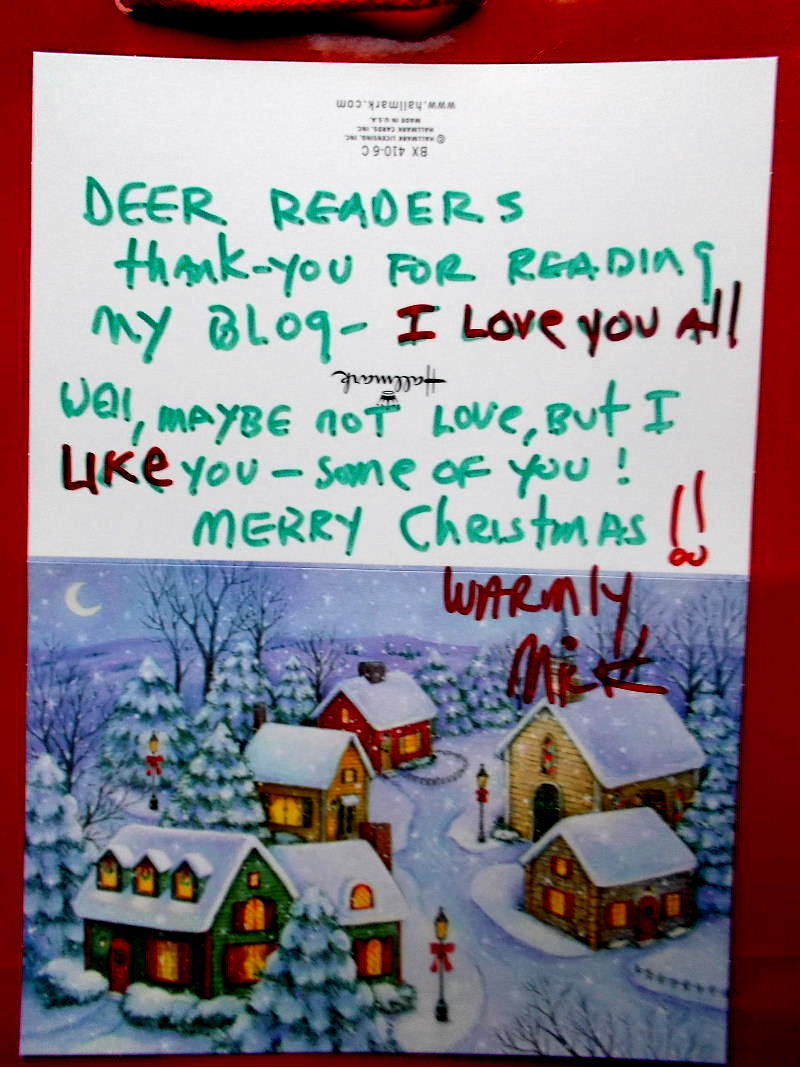 www.hallmark.com
MADE IN U.S.A.
HALLMARK CARDS, INC.
© HALLMARK LICENSING, INC.
BX 410-6 C
DEER READERS
thank-you FOR READING
MY BLOG - I LOVE you All
Well, MAYBE NOT LOVE, BUT I
LIKE YOU - Some OF you !
MERRY ChRISTMAS !!
Hallmark
WARMLY
MICK